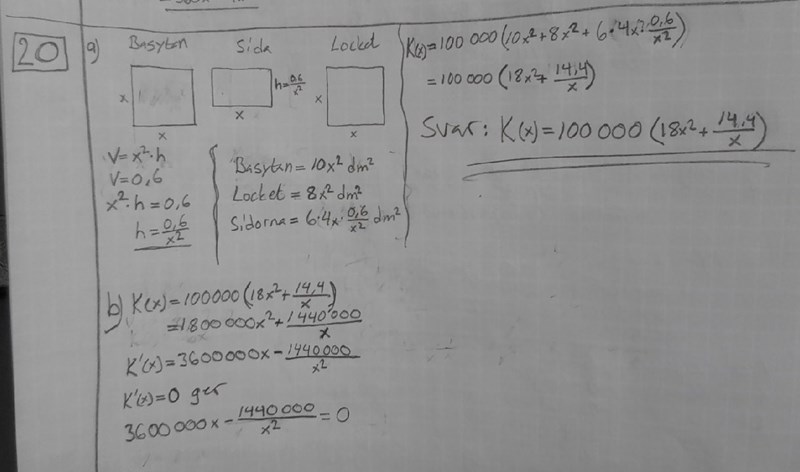 20
a) Basytan Sida Locket
h=0,6/x²
x x
x x x
V=x²·h
V=0,6
x²·h=0,6
h=0,6/x²
Basytan=10x² dm²
Locket=8x² dm²
Sidorna=6·4x·0,6/x² dm²
K(x)=100 000(10x²+8x²+6·4x·0,6/x²)
=100 000(18x²+14,4/x)
Svar: K(x)=100 000(18x²+14,4/x)
b) K(x)=100000(18x²+14,4/x)
=1800 000x²+1440'000/x
K'(x)=3600000x-1440000/x²
K'(x)=0 ger
3600 000x-1440 000/x²=0